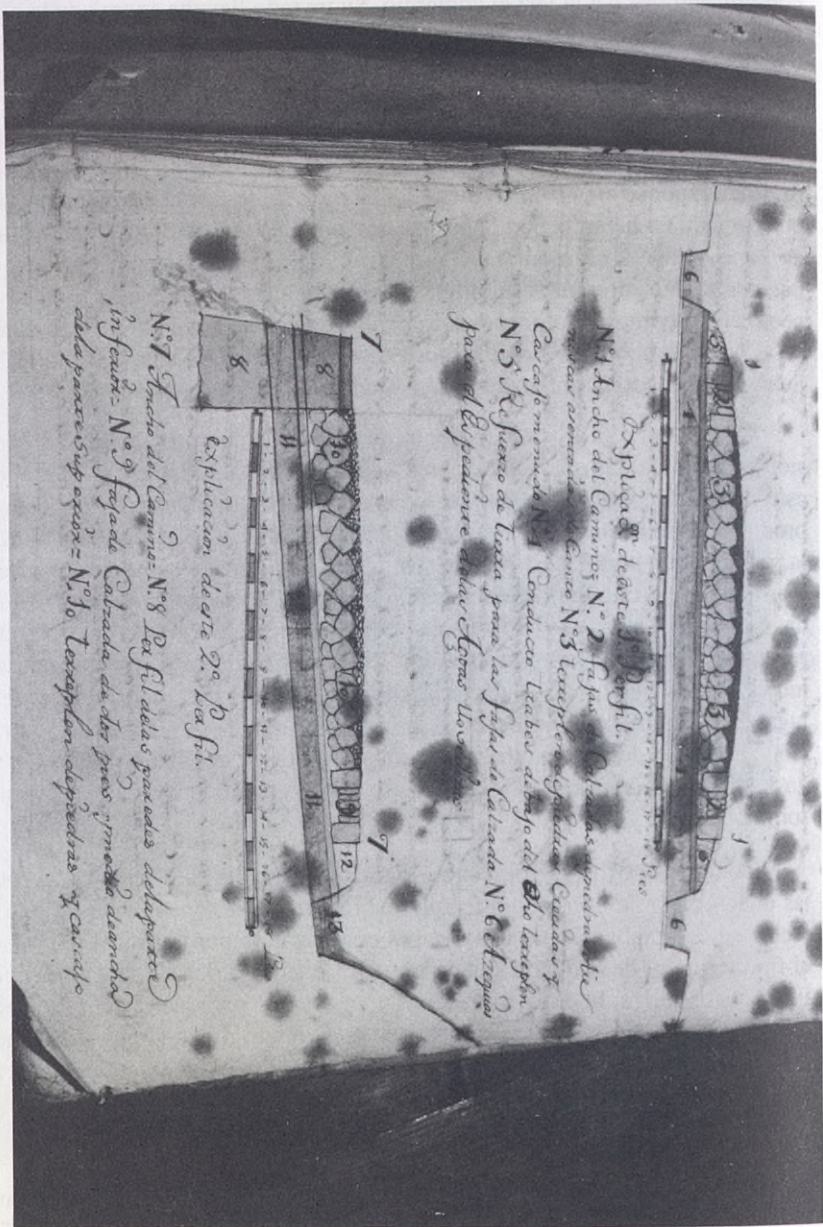 1 1
6 5 2 3 3 2 5 6
4 4
Pies
Explicac.n de este 1º Perfil.
Nº1 Ancho del Camino= Nº.2 fajas de Calzadas de piedra
Nº3 terraplen de piedras Crecidas y
Cascajo menudo Nº4 Conducto debajo del dho terraplen
Nº5 Refuerzo de tierra para las fajas de Calzada Nº6 Azequias
para el Expediente de las Aguas
7 7
8 10 10 9 12
8 11 11 13
1 2 3 4 5 6 7 8 9 10 11 12 13 14 15 16
Explicacion de este 2º Perfil.
Nº7 Ancho del Camino= Nº8 Perfil de las paredes de la parte
inferior= Nº9 faja de Calzada de dos pies y medio de ancho
de la parte Superior= Nº10 terraplen de piedras y cascajo